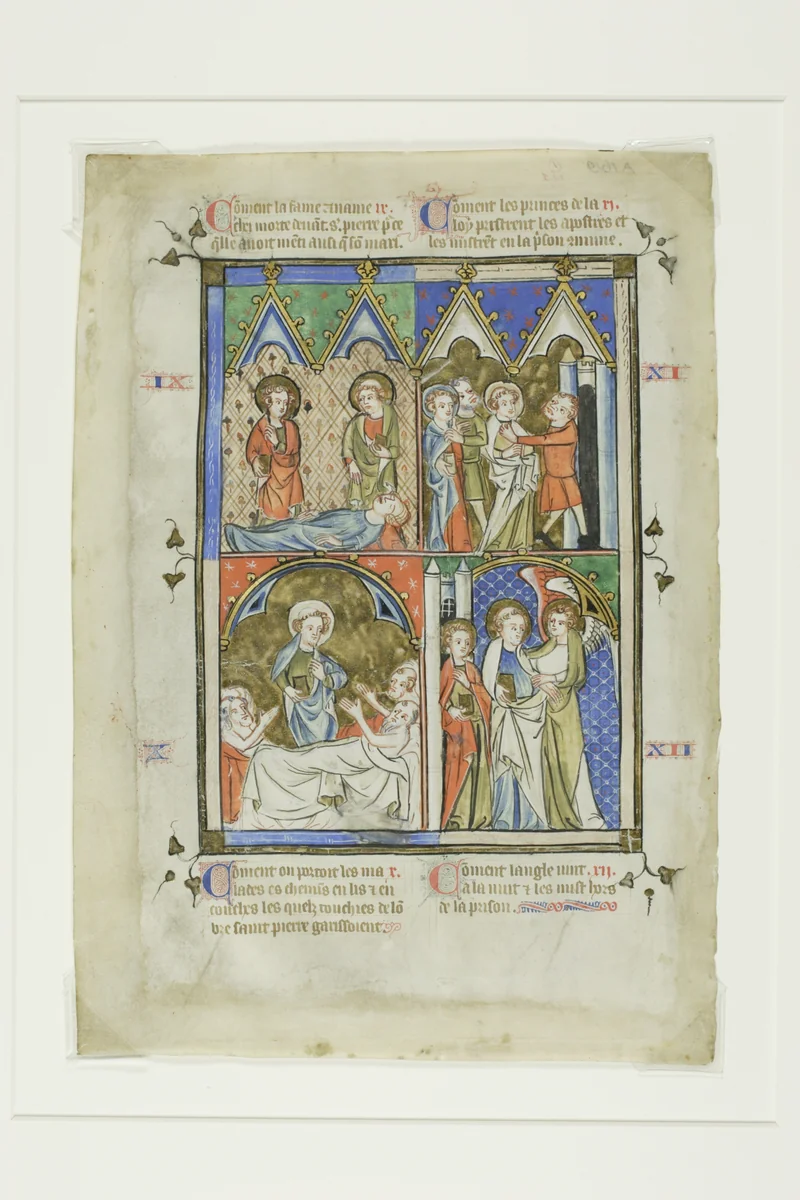 Cōment la fame anānie ix.
chei morte deuāt. s'. pierre p̄ce
q̄lle auoit mēti ausi q̄ sō mari.
Coment les princes de la xi.
loy pristrent les apostres et
les mistrēt en la p̄son cōmune.
IX
XI
X
XII
Cōment on portoit les ma x.
lades es chemīs en lis ⁊ en
couches les quelx touchies de lō
bre saint pierre garissoient.
Cōment langle uint. xii.
a la nuit ⁊ les mist hors
de la prison.